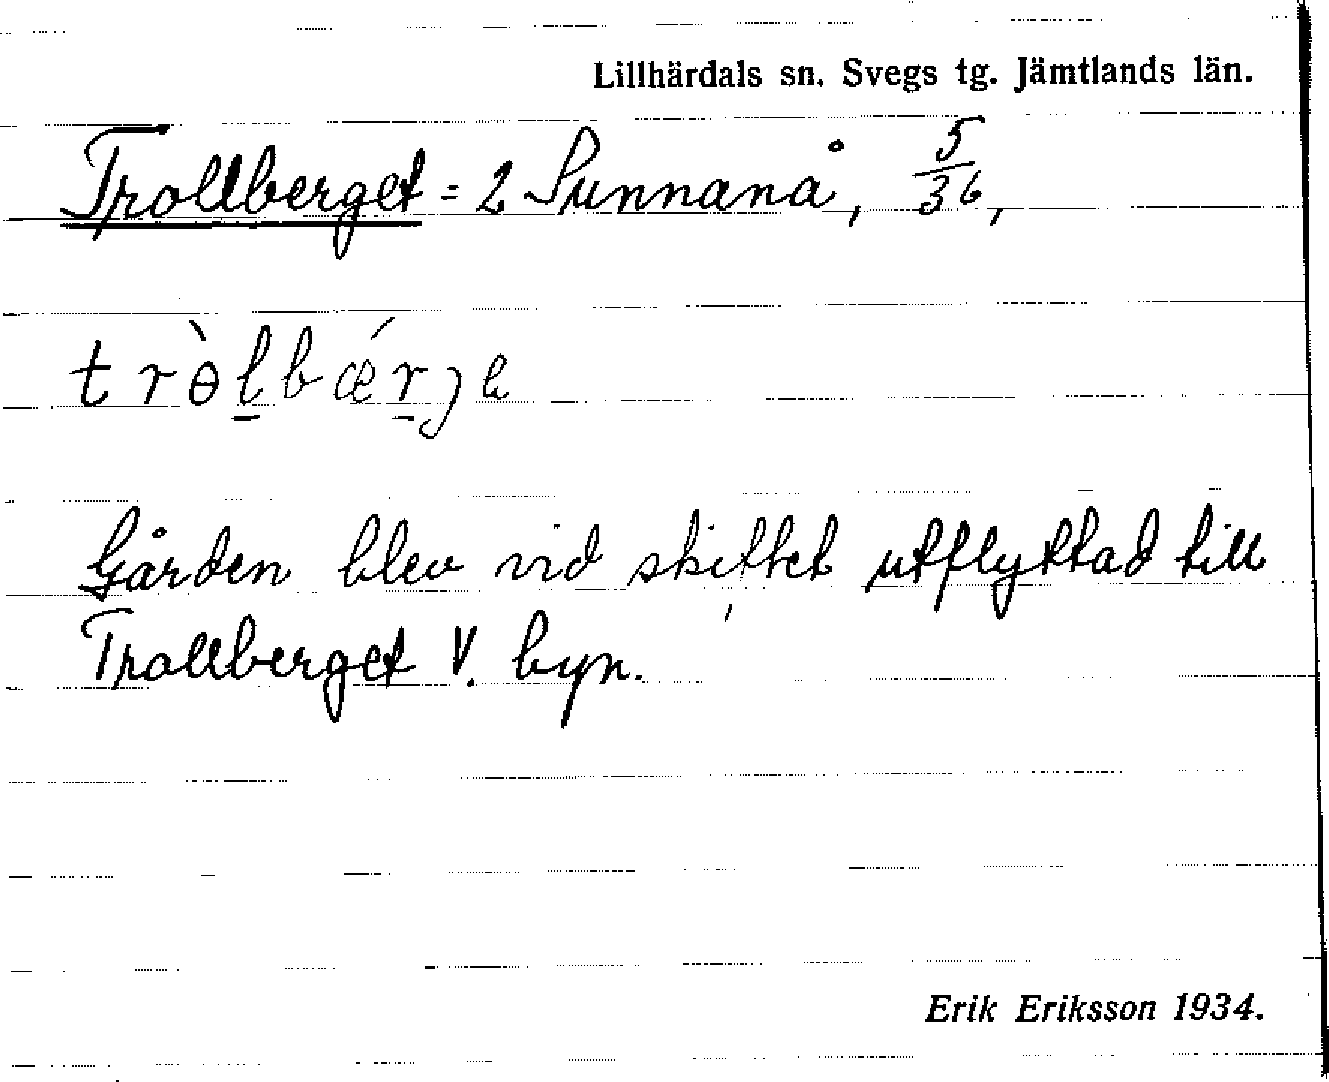 Lillhärdals sn. Svegs tg. Jämtlands län.
Trollberget = 2 Sunnanå, 5/36,
trɵ̀l̲bǽr̲ȷe
Gården blev vid skiftet utflyttad till
Trollberget V. byn.
Erik Eriksson 1934.